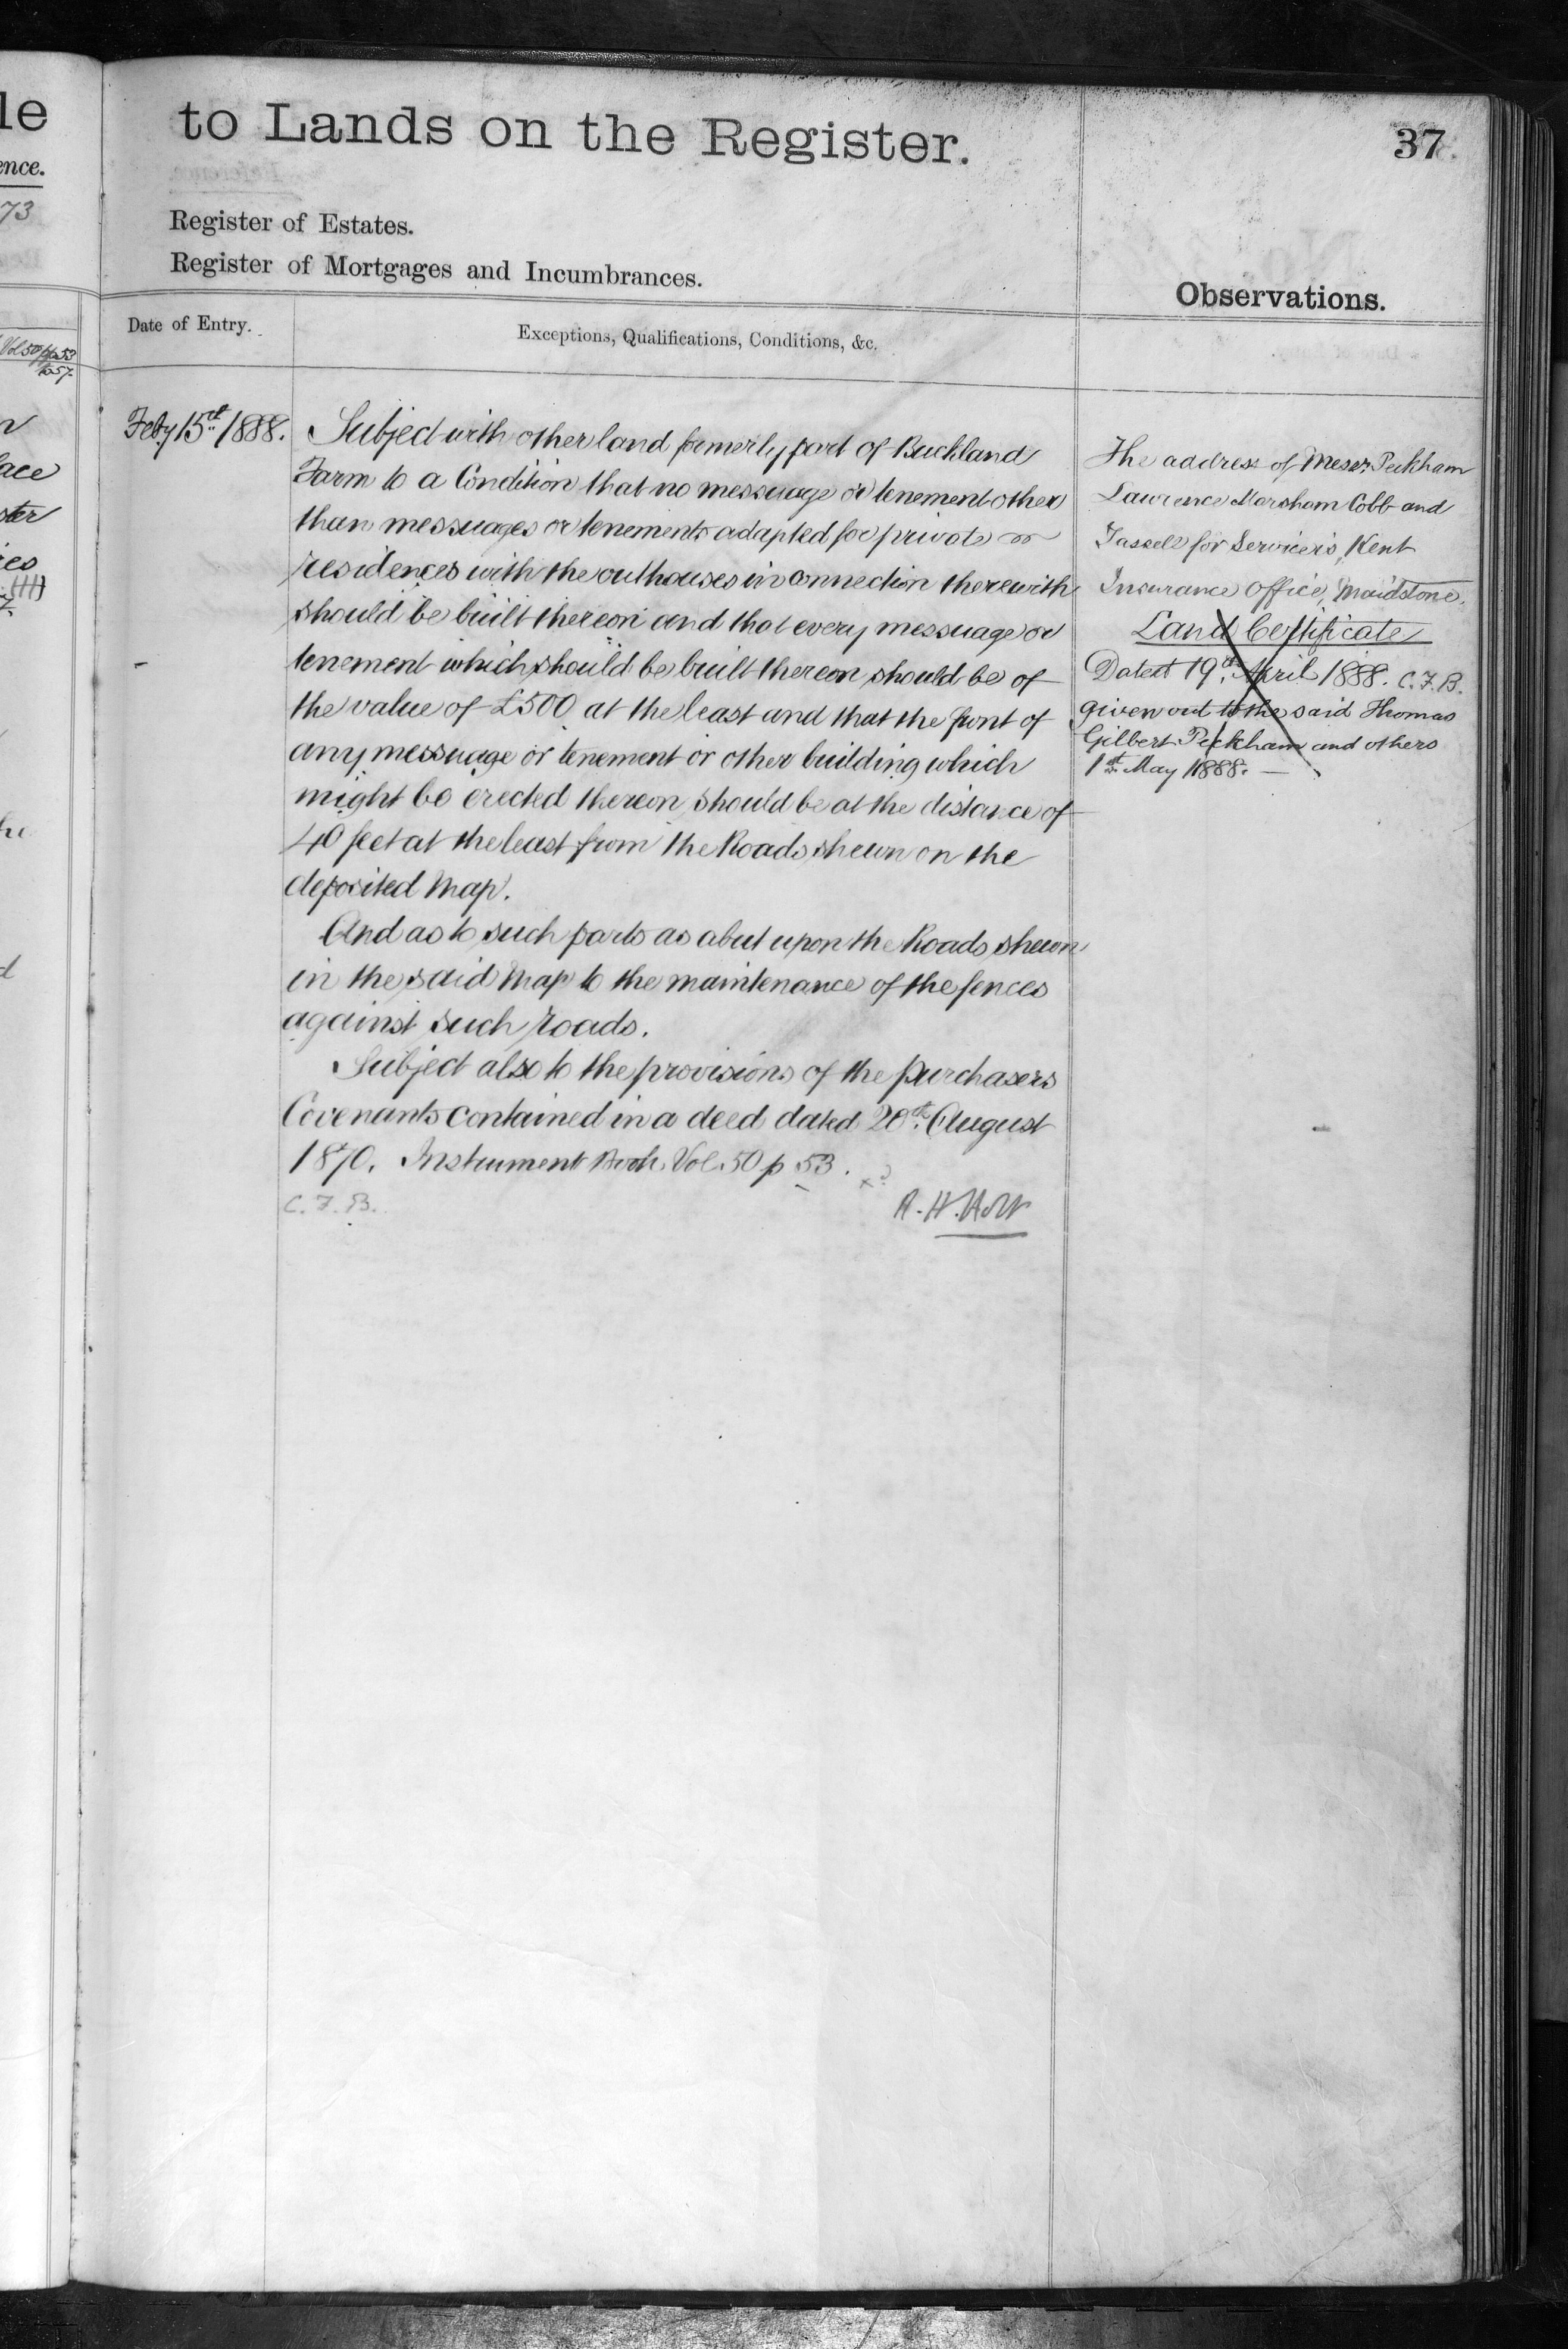 le
ence.
73
Vol 50 pp 53
to 57.
ace
ster
ies
to Lands on the Register.
37
Register of Estates.
Register of Mortgages and Incumbrances.
Observations.
Date of Entry.
Exceptions, Qualifications, Conditions, &c.
Feby 15th 1888.
Subject with other land formerly part of Buckland
Farm to a Condition that no messuage or tenement other
than messuages or tenements adapted for private
residences with the outhouses in connection therewith
should be built thereon and that every messuage or
tenement which should be built thereon should be of
the value of £500 at the least and that the front of
any messuage or tenement or other building which
might be erected thereon should be at the distance of
40 feet at the least from the Roads shewn on the
deposited Map.
And as to such parts as abut upon the Roads shewn
in the said Map to the maintenance of the fences
against such roads.
Subject also to the provisions of the purchasers
Covenants contained in a deed dated 20th August
1870. Instrument Book. Vol. 50 p 53.
C. F. B.
R. H. Holt
The address of Messrs Peckham
Lawrence Marsham Cobb and
Tassell for Service is, Kent
Insurance Office, Maidstone.
Land Certificate
Dated 19th April 1888. C. F. B.
given out to the said Thomas
Gilbert Peckham and others
1st May 1888. —